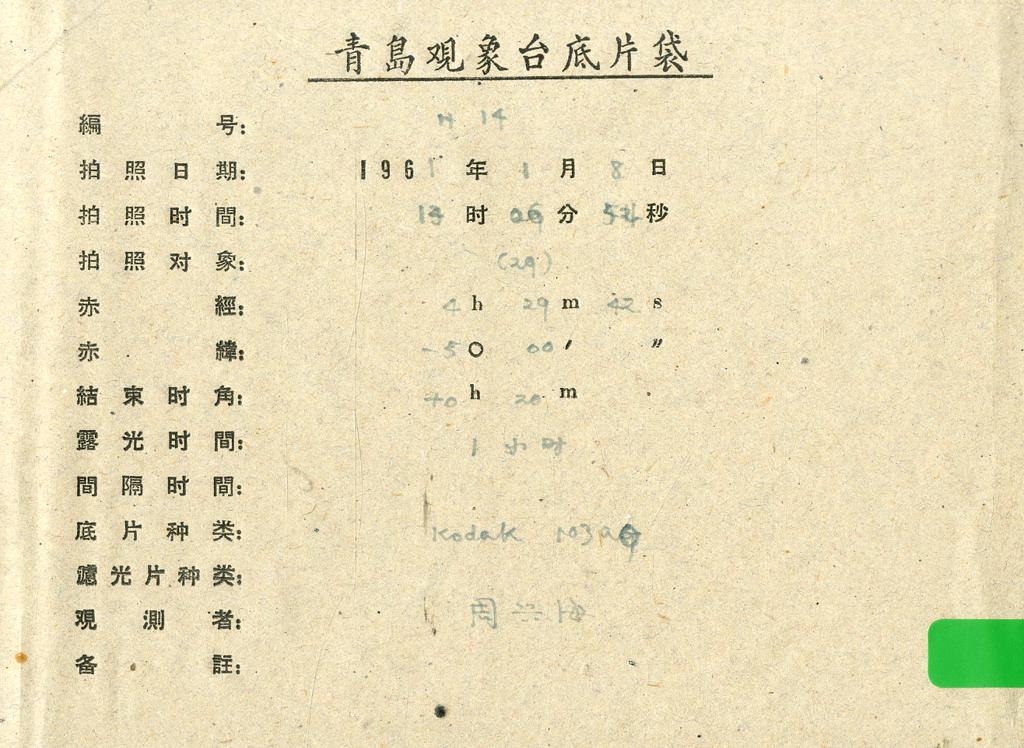 青島观象台底片袋
編号: H 14
拍照日期: 1961年1月8日
拍照时間: 13时06分52秒
拍照对象: (29)
赤經: 4h 29m 42s
赤緯: -5° 00′ ″
結束时角: +0h 20m
露光时間: 1 小时
間隔时間:
底片种类: Kodak 103a
濾光片种类:
观測者: 周兴海
备註: